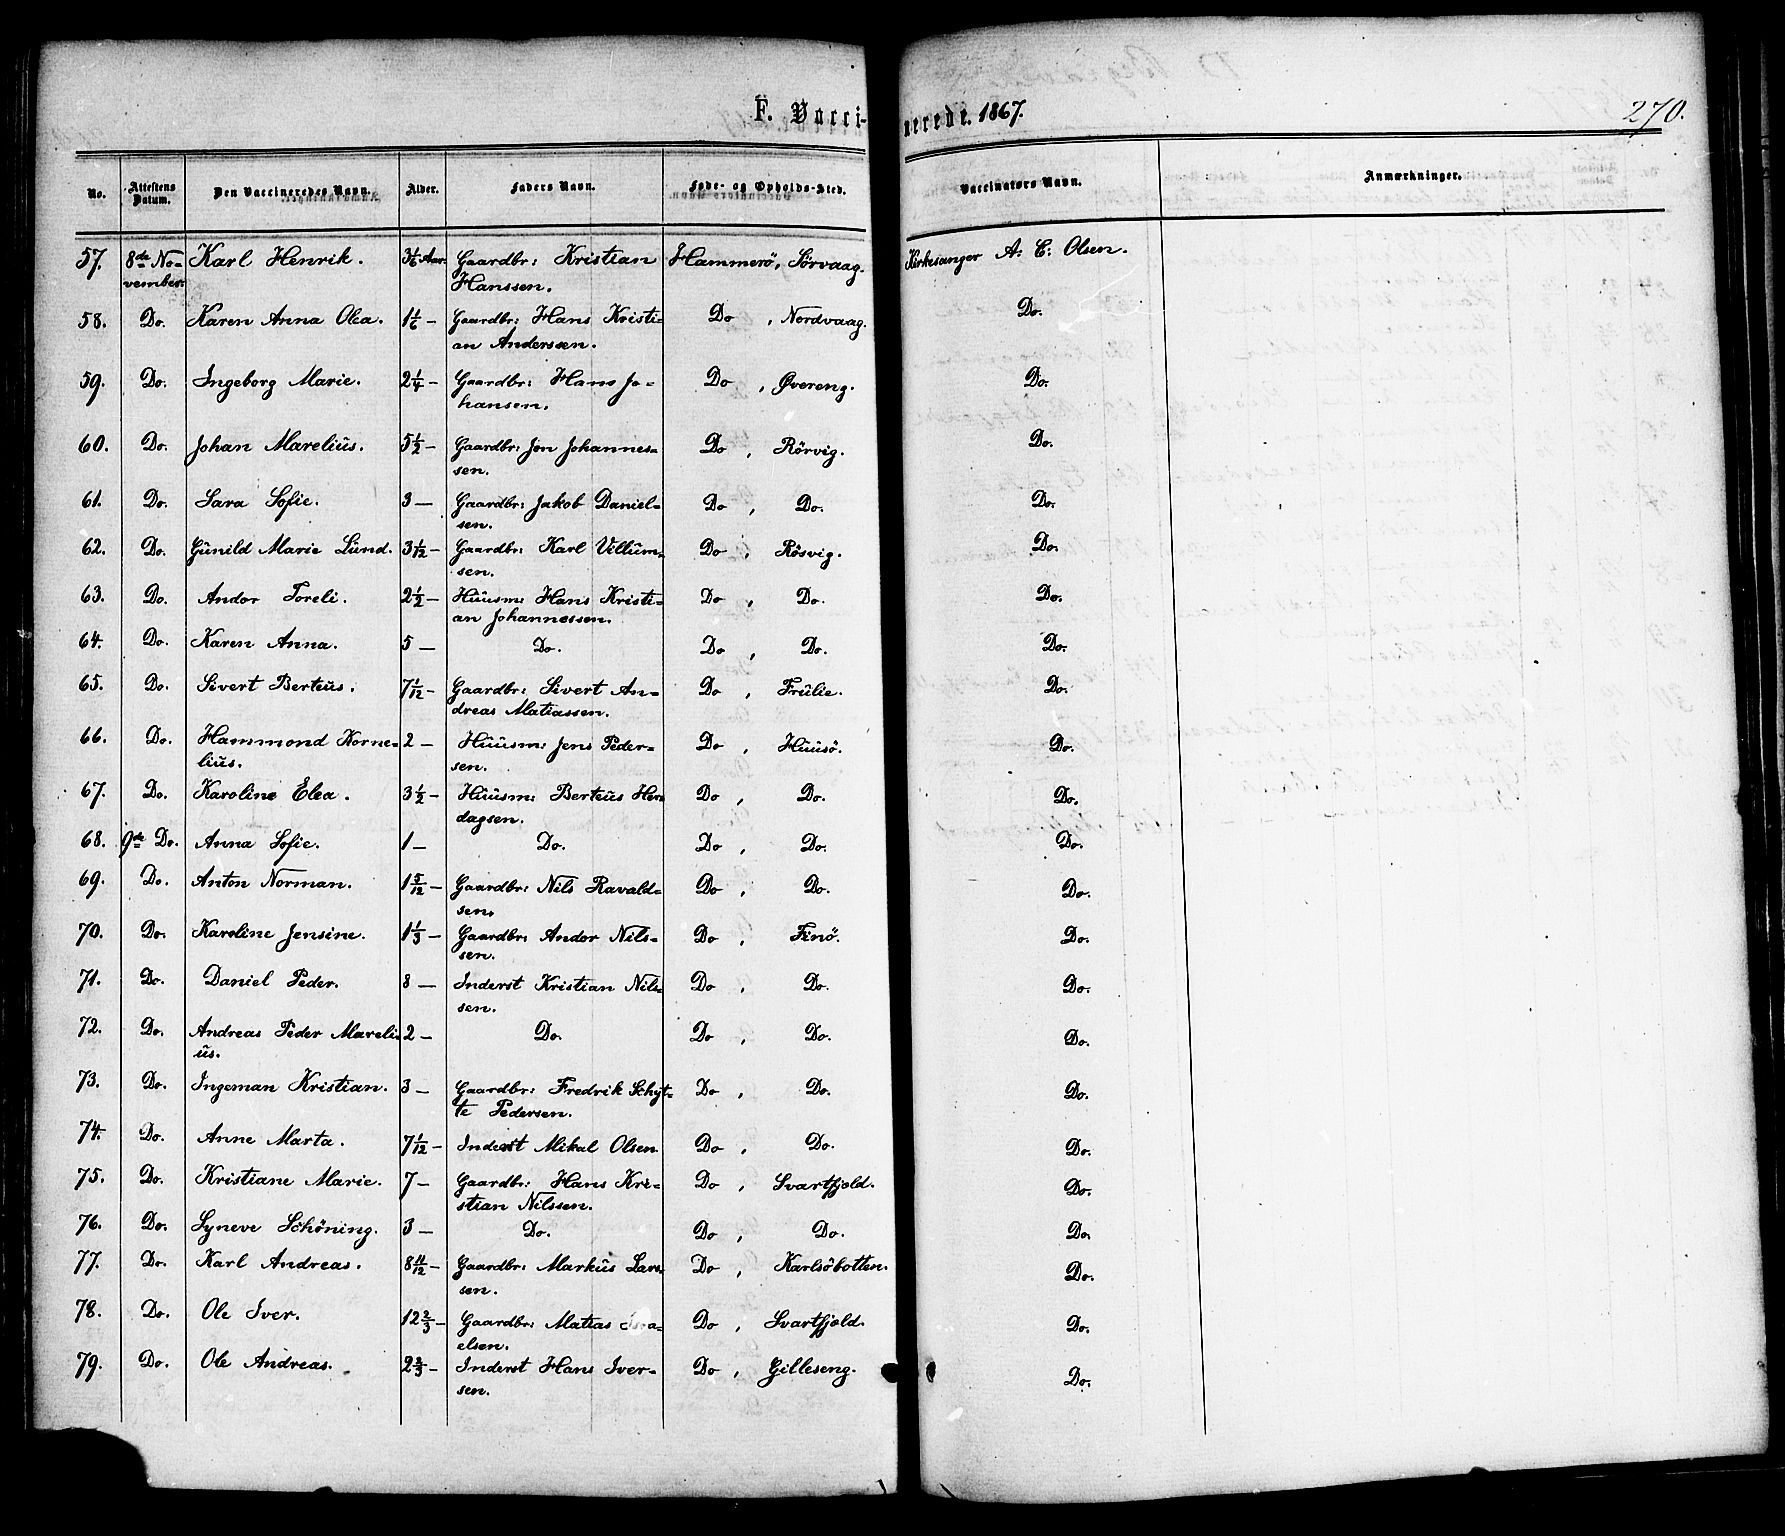 F. Vaccinerede. 1867.
270.
No. | Attestens Datum. | Den Vaccineredes Navn. | Alder. | Faders Navn. | Føde- og Opholds-Sted. | Vaccinatørs Navn. | Anmærkninger.
57. 8de No- Karl Henrik. 3 1/6 Aar. Gaardbr: Kristian Hammerö, Sörvaag. Kirkesanger A. E. Olsen.
vember. Hanssen.
58. Do. Karen Anna Olea. 1 1/6 — Gaardbr: Hans Kristi- Do , Nordvaag. Do.
an Anderssen.
59. Do. Ingeborg Marie. 2 1/4 — Gaardbr: Hans Jo- Do , Øvereng. Do.
hansen.
60. Do. Johan Mareliüs. 5 1/2 — Gaardbr: Jon Johannes- Do , Rörvig. Do.
sen.
61. Do. Sara Sofie. 3 — Gaardbr: Jakob Daniel- Do , Do. Do.
sen.
62. Do. Günild Marie Lünd. 3 1/12 — Gaardbr: Karl Villüm- Do , Rösvig. Do.
sen.
63. Do. Andor Toreli. 2 1/2 — Hüüsm: Hans Kristi- Do , Do. Do.
an Johannessen.
64. Do. Karen Anna. 5 — Do. Do , Do. Do.
65. Do. Sivert Berteüs. 7 1/12 — Gaardbr: Sivert An- Do , Frülie. Do.
dreas Matiassen.
66. Do. Hammond Korne- 2 — Hüüsm: Jens Peder- Do , Hüüsö. Do.
liüs. sen.
67. Do. Karoline Elea. 3 1/2 — Hüüsm: Berteüs Her- Do , Do. Do.
dagsen.
68. 9de Do. Anna Sofie. 1 — Do. Do , Do. Do.
69. Do. Anton Norman. 1 5/12 — Gaardbr: Nils Ravald- Do , Do. Do.
sen.
70. Do. Karoline Jensine. 1 1/3 — Gaardbr: Andor Nils- Do , Finö. Do.
sen.
71. Do. Daniel Peder. 8 — Inderst Kristian Nils- Do , Do. Do.
sen.
72. Do. Andreas Peder Mareli- 2 — Do. Do , Do. Do.
üs.
73. Do. Ingeman Kristian. 3 — Gaardbr: Fredrik Schyt- Do , Do. Do.
te Pedersen.
74. Do. Anne Marta. 7 1/12 — Inderst Mikal Olsen. Do , Do. Do.
75. Do. Kristiane Marie. 7 — Gaardbr: Hans Kri- Do , Svartfjeld. Do.
stian Nilssen.
76. Do. Syneve Schöning. 3 — Do. Do , Do. Do.
77. Do. Karl Andreas. 8 11/12 — Gaardbr: Marküs Lars- Do , Karlsöbotten. Do.
sen.
78. Do. Ole Iver. 12 2/3 — Gaardbr: Matias Isra- Do , Svartfjeld. Do.
elsen.
79. Do. Ole Andreas. 2 2/3 — Inderst Hans Iver- Do , Gilleseng. Do.
sen.